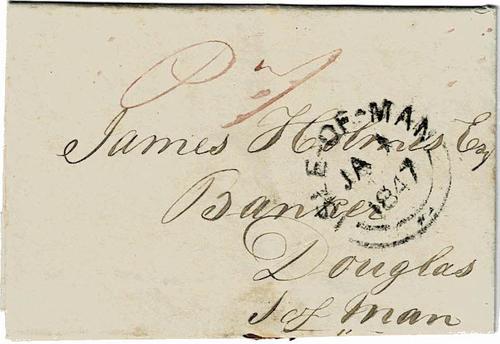 James Holmes Esq
Banker
Douglas
I of Man
ISLE-OF-MAN
JA 7
1847